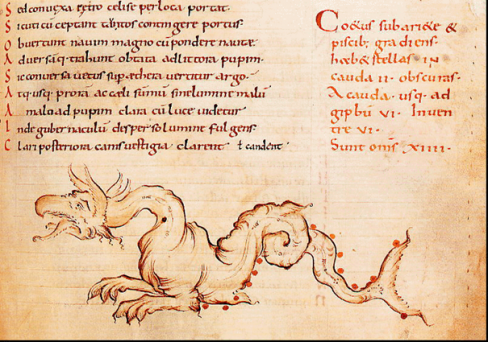 Sed conuexa retro celise per loca portat.
Sicuti cū ceptant tutos contingere portus.
Obuertunt nauim magno cū pondere nautę
Aduersāq; trahunt obtata adlitora pupim
Sic conuersa uetus sup ęthera uertitur argo.
Atq; usq; prorā ac cęli sūmū sine lumine malū
A malo ad pupim clara cū luce uidetur
Inde gubernaculū disperso lumine fulgens.
Clari posteriora canis uestigia clarent ł candent
Coetus sub ariete &
piscib; gradiens.
hab& stellas. in
cauda ii. obscuras.
A cauda. usq; ad
gipbū vi. In uen
tre vi.
Sunt om̄s xiiii.